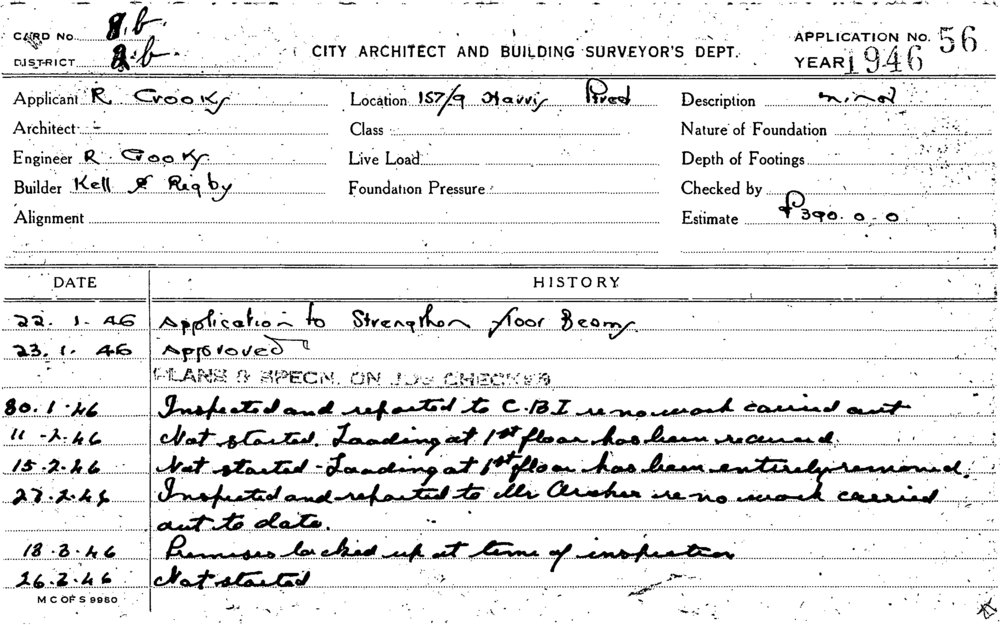 CARD No. 8.b.
DISTRICT 8.b.
CITY ARCHITECT AND BUILDING SURVEYOR'S DEPT.
APPLICATION No. 56
YEAR 1946
Applicant R Crooks
Location 157/9 Harris Street
Description minor
Architect -
Class
Nature of Foundation
Engineer R Crooks
Live Load
Depth of Footings
Builder Kell & Rigby
Foundation Pressure
Checked by
Alignment
Estimate £390.0.0
DATE HISTORY
22. 1. 46 Application to Strengthen floor Beams
23. 1. 46 Approved
PLANS & SPECN. ON JOB CHECKED
30.1.46 Inspected and reported to C.B.I re no work carried out
11-2-46 Not started. Loading at 1st floor has been
15-2-46 Not started - Loading at 1st floor has been entirely removed.
27-2-46 Inspected and reported to Mr Archer re no work carried
out to date.
18.3.46 Premises locked up at time of inspection
26.3.46 Not started
M C OF S 9980